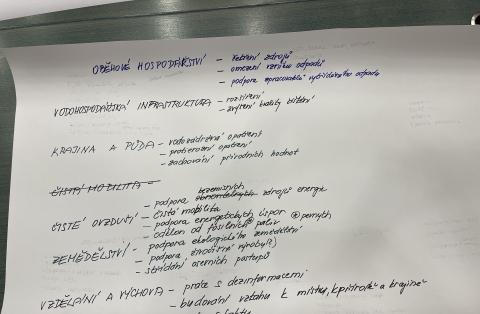 OBĚHOVÉ HOSPODÁŘSTVÍ – šetření zdrojů
– omezení vzniku odpadů
– podpora zpracovatelů vytříděného odpadu
VODOHOSPODÁŘSKÁ INFRASTRUKTURA – rozšíření
– zvýšení kvality čištění
KRAJINA A PŮDA – vodozádržná opatření
– protierozní opatření
– zachování přírodních hodnot
ČISTÁ MOBILITA –
bezemisních
– podpora zdrojů energie
ČISTÉ OVZDUŠÍ – čistá mobilita
– podpora energetických úspor
– odklon od fosilních paliv pevných
ZEMĚDĚLSTVÍ – podpora ekologického zemědělství
– podpora živočišné výroby
– střídání osevních postupů
VZDĚLÁNÍ A VÝCHOVA – práce s dezinformacemi
– budování vztahu k místu, a krajině